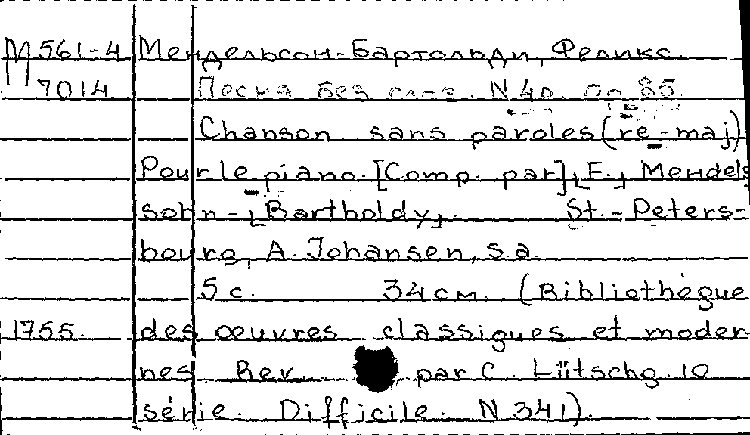 М 561-4 Мендельсон-Бартольди, Феликс.
7014 Песня без слов. N 40. Op. 85.
Chanson sans paroles (ré-maj)
Pour le piano. [Comp. par] [F.] Mendels
sohn-[Bartholdy]. St.-Peters-
bourg, A. Johansen, s.a.
5 с. 34 см. (Bibliothègue
1755. des oeuvres classigues et moder
nes Rev. par C. Lütschg. 10
série. Difficile. N 341).